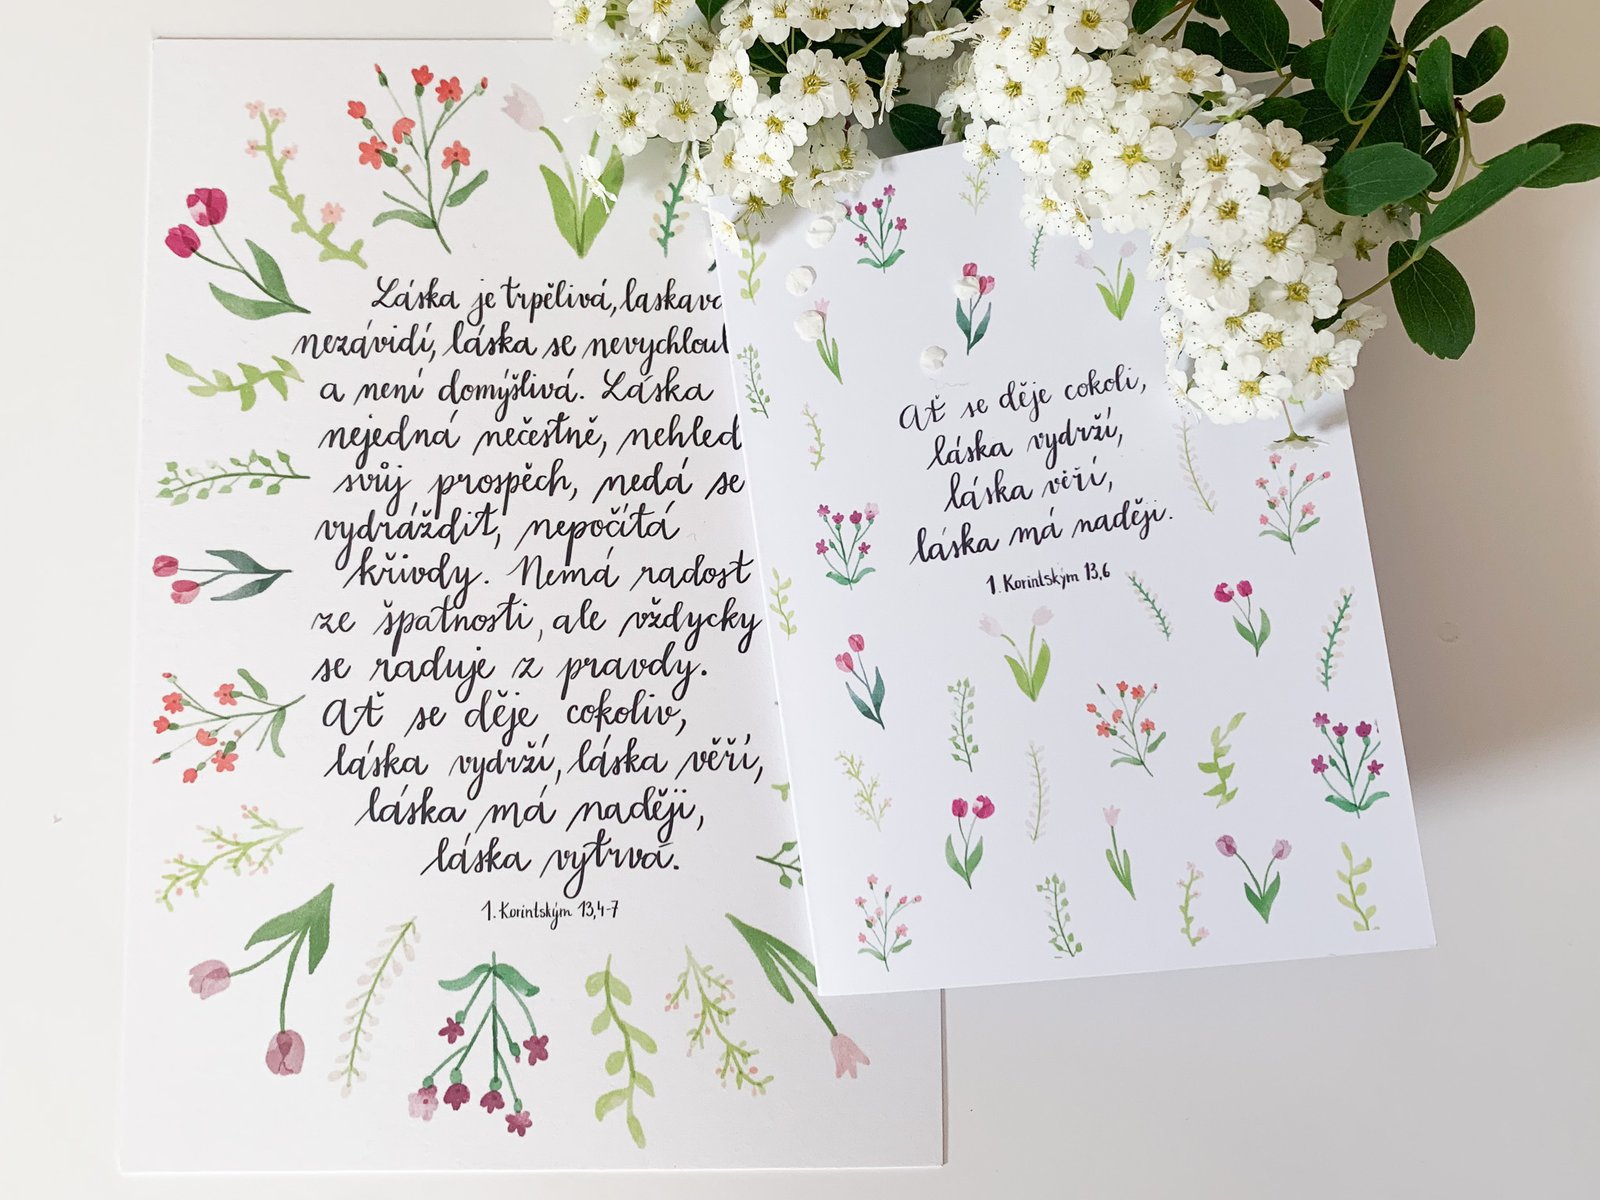 Láska je trpělivá, laskavá
nezávidí, láska se
a není domýšlivá. Láska
nejedná nečestně,
svůj prospěch, nedá se
vydráždit, nepočítá
křivdy. Nemá radost
ze špatnosti, ale vždycky
se raduje z pravdy.
Ať se děje cokoliv,
láska vydrží, láska věří,
láska má naději,
láska vytrvá.
1. Korintským 13,4-7
Ať se děje cokoli,
láska vydrží,
láska věří,
láska má naději.
1. Korintským 13,6